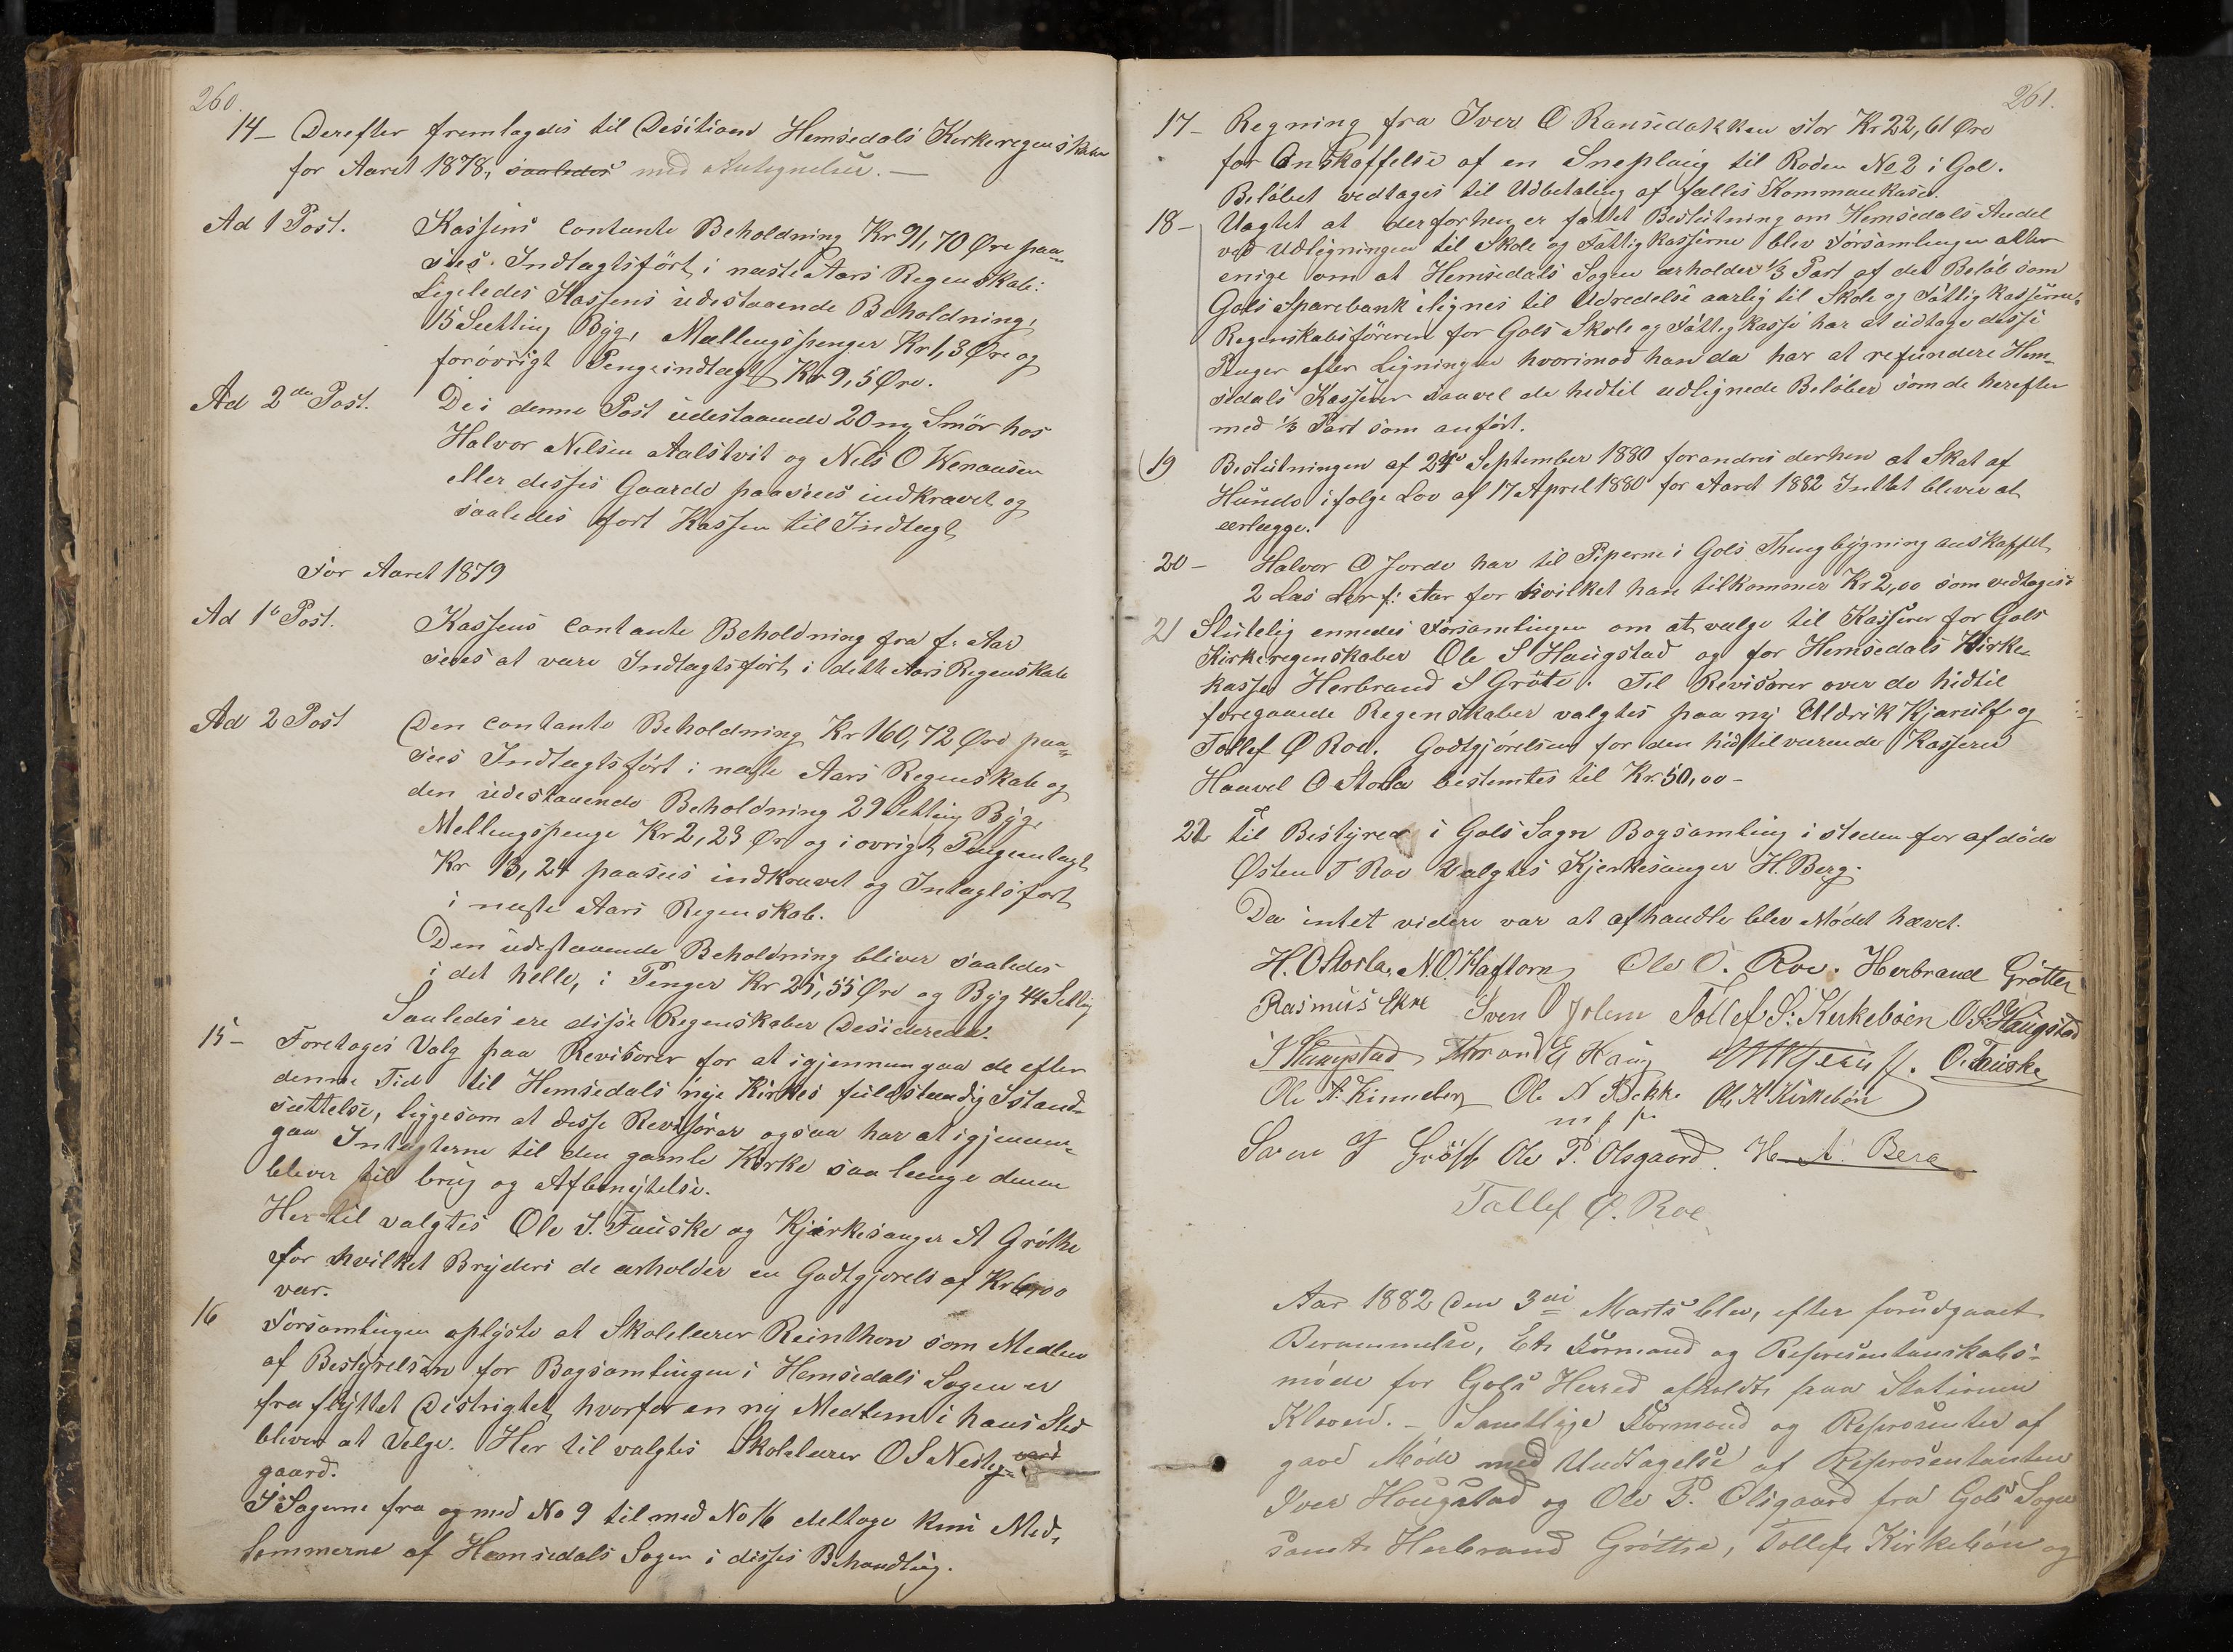 260.
14- Derefter fremlagdes til Desition Hemsedals Kirkeregenskaber
for Aaret 1878, saaledes med Antegnelser. -
Ad 1 Post. Kassens contante Beholdning Kr 91,70 Øre paa-
sees Indtægtsført i næste Aars Regenskab.
Ligeledes Kassens udestaaende Beholdning,
15 Setting Byg, Mellengspenger Kr 1,3 Øre og
forøvrigt Pengeindtægt Kr 9,5 Øre.
Ad 2den Post. De i denne Post udestaaende 20 mg Smör hos
Halvor Nilsen Aalstvit og Nils O
eller disses Gaarde paasees indkrævet og
saaledes fort Kassen til Indtægt
For Aaret 1879
Ad 1e Post. Kassens contante Beholdning fra f. Aar
sees at være Indtægtsført i dette Aars Regenskab
Ad 2 Post Den contante Beholdning Kr 160,72 Øre paa-
sees Indtægtsført i neste Aars Regenskab og
den udestaaende Beholdning 29 Setting Byg,
Mellengspenge Kr 2,23 Øre og i øvrigt Pengeintægt
Kr 13,24 paasees indkrævet og Intægtsført
i neste Aars Regenskab.
Den udestaaende Beholdning bliver saaledes
i det helle, i Penger Kr 25,55 Øre og Byg 44 Setting
Saaledes ere disse Regenskaber Desiderede.
15- Foretoges Valg paa Revisorer for at igjennemgaa de efter
denne Tid til Hemsedals nye Kirkes fuldstændig Istand-
sættelse, liggesom at disse Revisorer ogsaa har at igjennem-
gaa Intægterne til den gamle Kirke saa længe denne
blever til brug og Afbenyttelse.
Her til valgtes Ole S. Fauske og Kjærkesanger A Grøthe
for hvilket Bryderi de erholder en Godtgjørels af Kr
vær.
16 Forsamlingen oplyste at Skolelærer Reinthon som Medlem
af Bestyrelsen for Bogsamlingen i Hemsedals Sogen er
fra flyttet Distrigtet, hvorfor en ny Medlem i hans Sted
bliver at Velge. Her til valgtes Skolelærer O S Nestegaard
gaard.
I Sagerne fra og med No 9 til med No 16 deltage kun Med-
lemmerne af Hemsedals Sogen i disses Behandling.
261.
17- Regning fra Iver O Ransedokken stor Kr 22,61 Øre
for Anskaffelse af en Sneplaug til Roden No 2 i Gol.
Beløbet vedtages til Udbetaling af fælles Kommunekasse.
18- Uagtet at der forhen er fattet Beslutning om Hemsedals Andel
ved Udligningen til Skole og Fattigkasserne blev Forsamlingen atter
enige om at Hemsedals Sogen erholder 1/3 Part af det Beløb som
Gols Sparebank ilignes til Udredelse aarlig til Skole og Fattigkasserne.
Regenskabsføreren for Gols Skole og Fattigkasse har at udtage disse
Penger efter Ligningen hvorimod han da har at refundere Hem-
sedals Kasserer saavel de hidtil udlignede Beløber som de herefter
med 1/3 Part som anført.
19 Beslutningen af 24de September 1880 forandres derhen at Skat af
Hunde ifølge Lov af 17 April 1880 for Aaret 1882 Inttet bliver at
erlægge.
20- Halvor O Jorde har til Piperne i Gols Thingbygning anskaffet
2 Læs Ler f. Aar for hvilket han tilkommer Kr 2,00 som vedtages.
21 Slutelig ennedes Forsamlingen om at valge til Kasserer for Gols
Kirkeregenskaber Ole S Haugstad og for Hemsedals Kirke
kasse Herbrand S Grøte. Til Revisorer over de hidtil
foregaaede Regenskaber valgtes paa ny Uldrik Kjærulf og
Tollef Ø Roe. Godtgjørelsen for den hidtilværende Kasserer
Haavel O Storla bestemtes til Kr. 50,00-
22 Til Bestyrer i Gols Sogn Bogsamling i steden for afdøde
Østen T Roe Valgtes Kjerkesanger H. Berg.
Da intet videre var at afhandle blev Mødet hævet.
H. O Storla, N. O Kaftorn Ole O. Roe. Herbrand Grøtte
Rasmus Ekre Sven O Jolem Tollef S: Kerkeboen O S: Haugstad
I Haugstad Thrond E Haug O. Fauske
Ole A. Kinneberg Ole N Bekke Ole H Kirkebøn
m p p
Sven Grøth Ole P. Olsgaard. H A. Berg
Tollef Ø. Roe
Aar 1882 den 3die Marts blev, efter forudgaaet
Berammelse, Et Formand og Representanskabs-
møde for Gols Herred afholdt paa Stationen
Kløven. - Samtlige Formænd og Represænter af
gave Møde med Undtagelse af Represæntanten
Iver Hougstad og Ole P. Olsgaard fra Gols Sogn
samt Herbrand Grøtte, Tollef Kirkebøn og